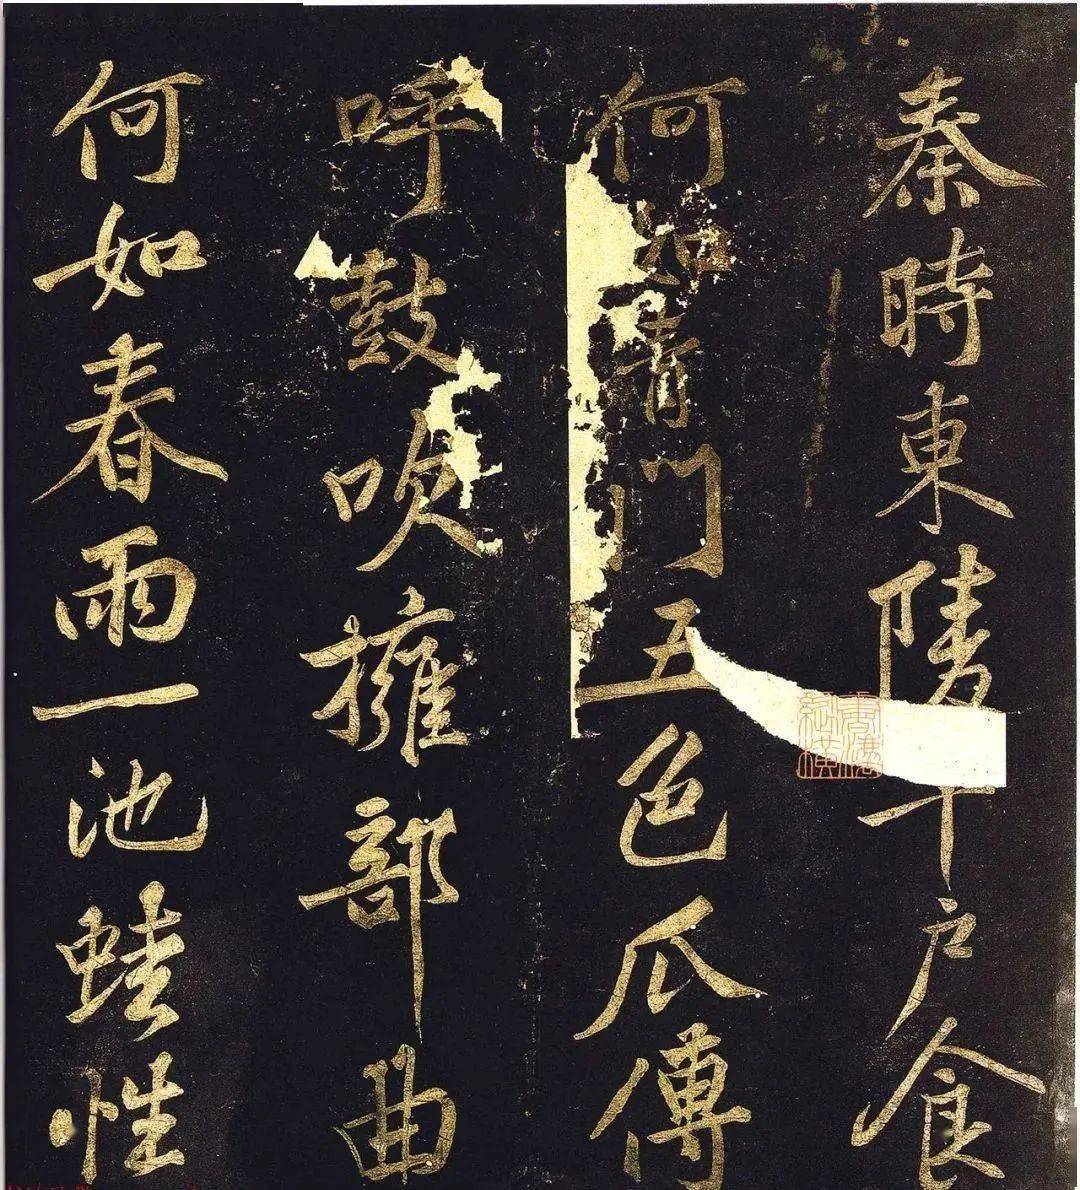 秦時東陵千戶食
何如青門五色瓜傳
呼鼓吹擁部曲
何如春雨一池蛙性